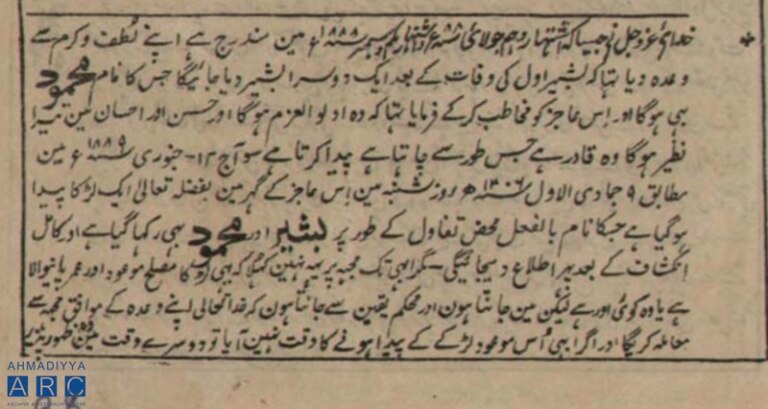 خدائے عزوجل نے جیسا کہ اشتہار دہم جولائی ۱۸۸۸ء و اشتہار یکم دسمبر ۱۸۸۸ء مین مندرج ہے اپنے لطف و کرم سے
وعدہ دیا تہا کہ بشیر اول کی وفات کے بعد ایک دوسرا بشیر دیا جائیگا جس کا نام محمود
بہی ہوگا اور اس عاجز کو مخاطب کر کے فرمایا تہا کہ وہ اولوالعزم ہوگا اور حسن اور احسان مین تیرا
نظیر ہوگا وہ قادر ہے جس طور سے چاہتا ہے پیدا کرتا ہے سو آج ۱۲- جنوری ۱۸۸۹ء مین
مطابق ۹ جمادی الاول ۱۳۰۶ھ روز شنبہ مین اس عاجز کے گہر مین بفضلہ تعالیٰ ایک لڑکا پیدا
ہوگیا ہے جسکا نام بالفعل محض تفاول کے طور پر بشیر اور محمود بہی رکہا گیا ہے اور کامل
انکشاف کے بعد پہر اطلاع دیجائیگی – مگر ابہی تک مجہہ پر یہہ نہین کہلا کہ یہی لڑکا مصلح موعود اور عمر پانیوالا
ہے یا وہ کوئی اور ہے لیکن مین جانتا ہون اور محکم یقین سے جانتا ہون کہ خدا تعالیٰ اپنے وعدہ کے موافق مجہہ سے
معاملہ کریگا اور اگر ابہی اُس موعود لڑکے کے پیدا ہونے کا وقت نہین آیا تو دوسرے وقت مین وہ ظہور پذیر
AHMADIYYA
ARC